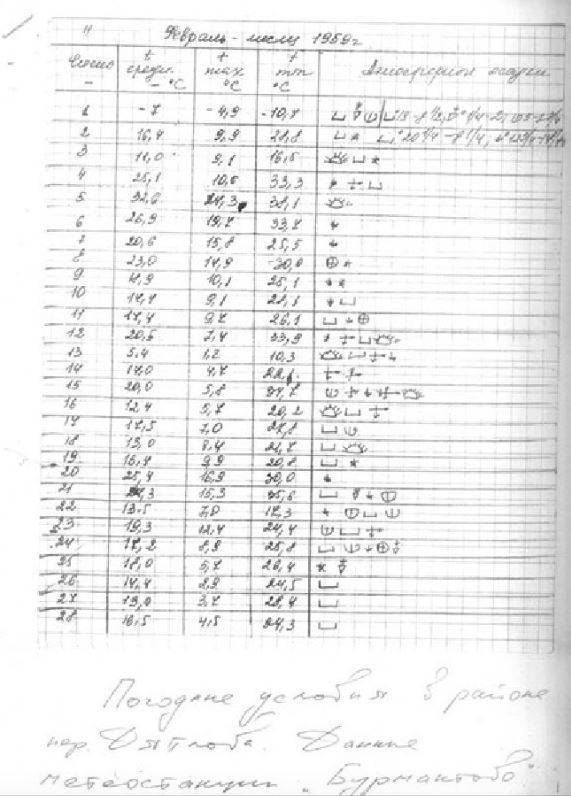 Февраль - месяц 1959г.
Число t средн. t max t min Атмосферные осадки
- - °C °C °C
1 -7 -4,9 -10,7
2 16,4 9,9 28,8
3 11,0 9,1 16,5
4 25,1 10,5 33,3
5 32,6 24,3 38,1
6 26,9 19,7 33,7
7 20,6 15,8 25,5
8 23,0 14,9 -30,0
9 18,9 10,1 25,1
10 14,4 9,1 28,1
11 17,4 9,7 26,1
12 20,5 7,4 33,9
13 5,4 1,2 10,3
14 17,0 4,7
15 20,0 5,8
16 12,4 5,7 20,2
17 17,5 7,0 27,8
18 13,0 8,4 21,7
19 16,7 9,9 20,8
20 25,4 16,9 30,0
21 15,3
22 13,5 7,0 17,3
23 19,3 12,4 24,4
24 17,2 8,9 25,8
25 18,0 5,7 26,4
26 14,4 2,9 24,5
27 19,0 3,7 28,4
28 16,5 4,5 24,3
Погодные условия в районе
пер. Дятлова. Данные
метеостанции „Бурмантово"